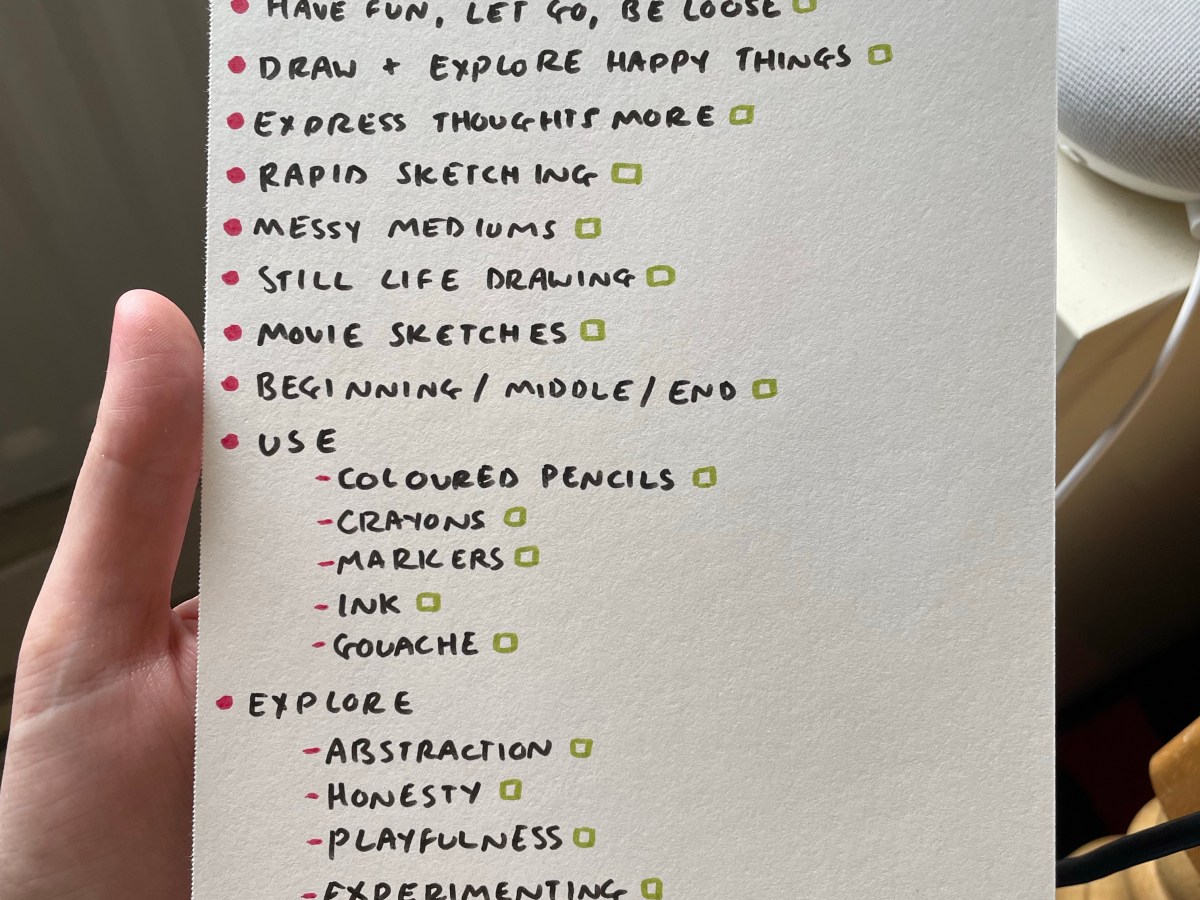 • HAVE FUN, LET GO, BE LOOSE
• DRAW + EXPLORE HAPPY THINGS
• EXPRESS THOUGHTS MORE
• RAPID SKETCHING
• MESSY MEDIUMS
• STILL LIFE DRAWING
• MOVIE SKETCHES
• BEGINNING / MIDDLE / END
• USE
- COLOURED PENCILS
- CRAYONS
- MARKERS
- INK
- GOUACHE
• EXPLORE
- ABSTRACTION
- HONESTY
- PLAYFULNESS
- EXPERIMENTING